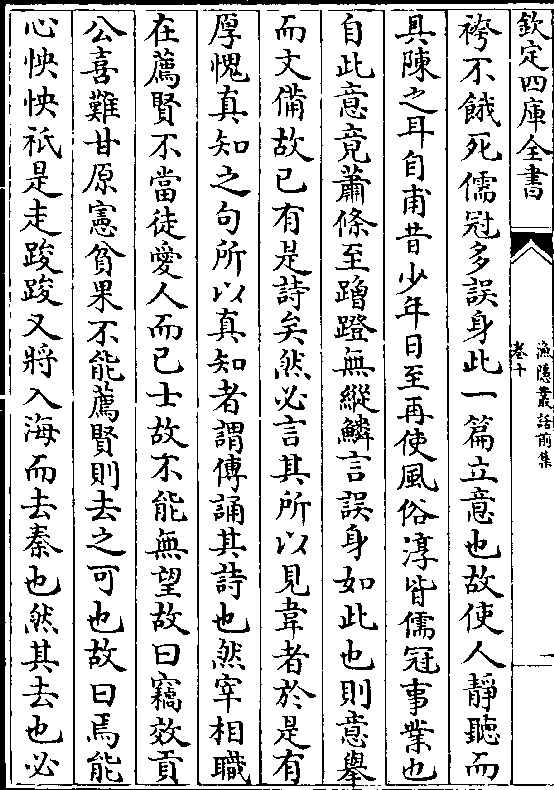 欽定四庫全書
漁隠叢話前集
卷十
一
袴不餓死儒冠多誤身此一篇立意也故使人靜聽而
具陳之耳自甫昔少年日至再使風俗淳皆儒冠事業也
自此意竟蕭條至蹭蹬無縱鱗言誤身如此也則意舉
而文備故已有是詩矣然必言其所以見韋者於是有
厚愧真知之句所以真知者謂傳誦其詩也然宰相職
在薦賢不當徒愛人而已士故不能無望故曰竊效貢
公喜難甘原憲貧果不能薦賢則去之可也故曰焉能
心怏怏祇是走踆踆又將入海而去秦也然其去也必